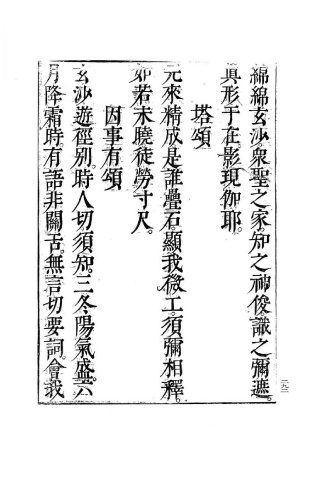 綿綿玄沙衆聖之家知之神俊識之彌遮。
真形于在。影現伽耶。
塔頌
元來精成是誰疊石。顯我微工。須彌相釋。
如若未曉徒勞寸尺。
因事有頌
玄沙遊徑別。時人切須知。三冬陽氣盛。六
月降霜時。有語非關舌。無言切要詞。會我